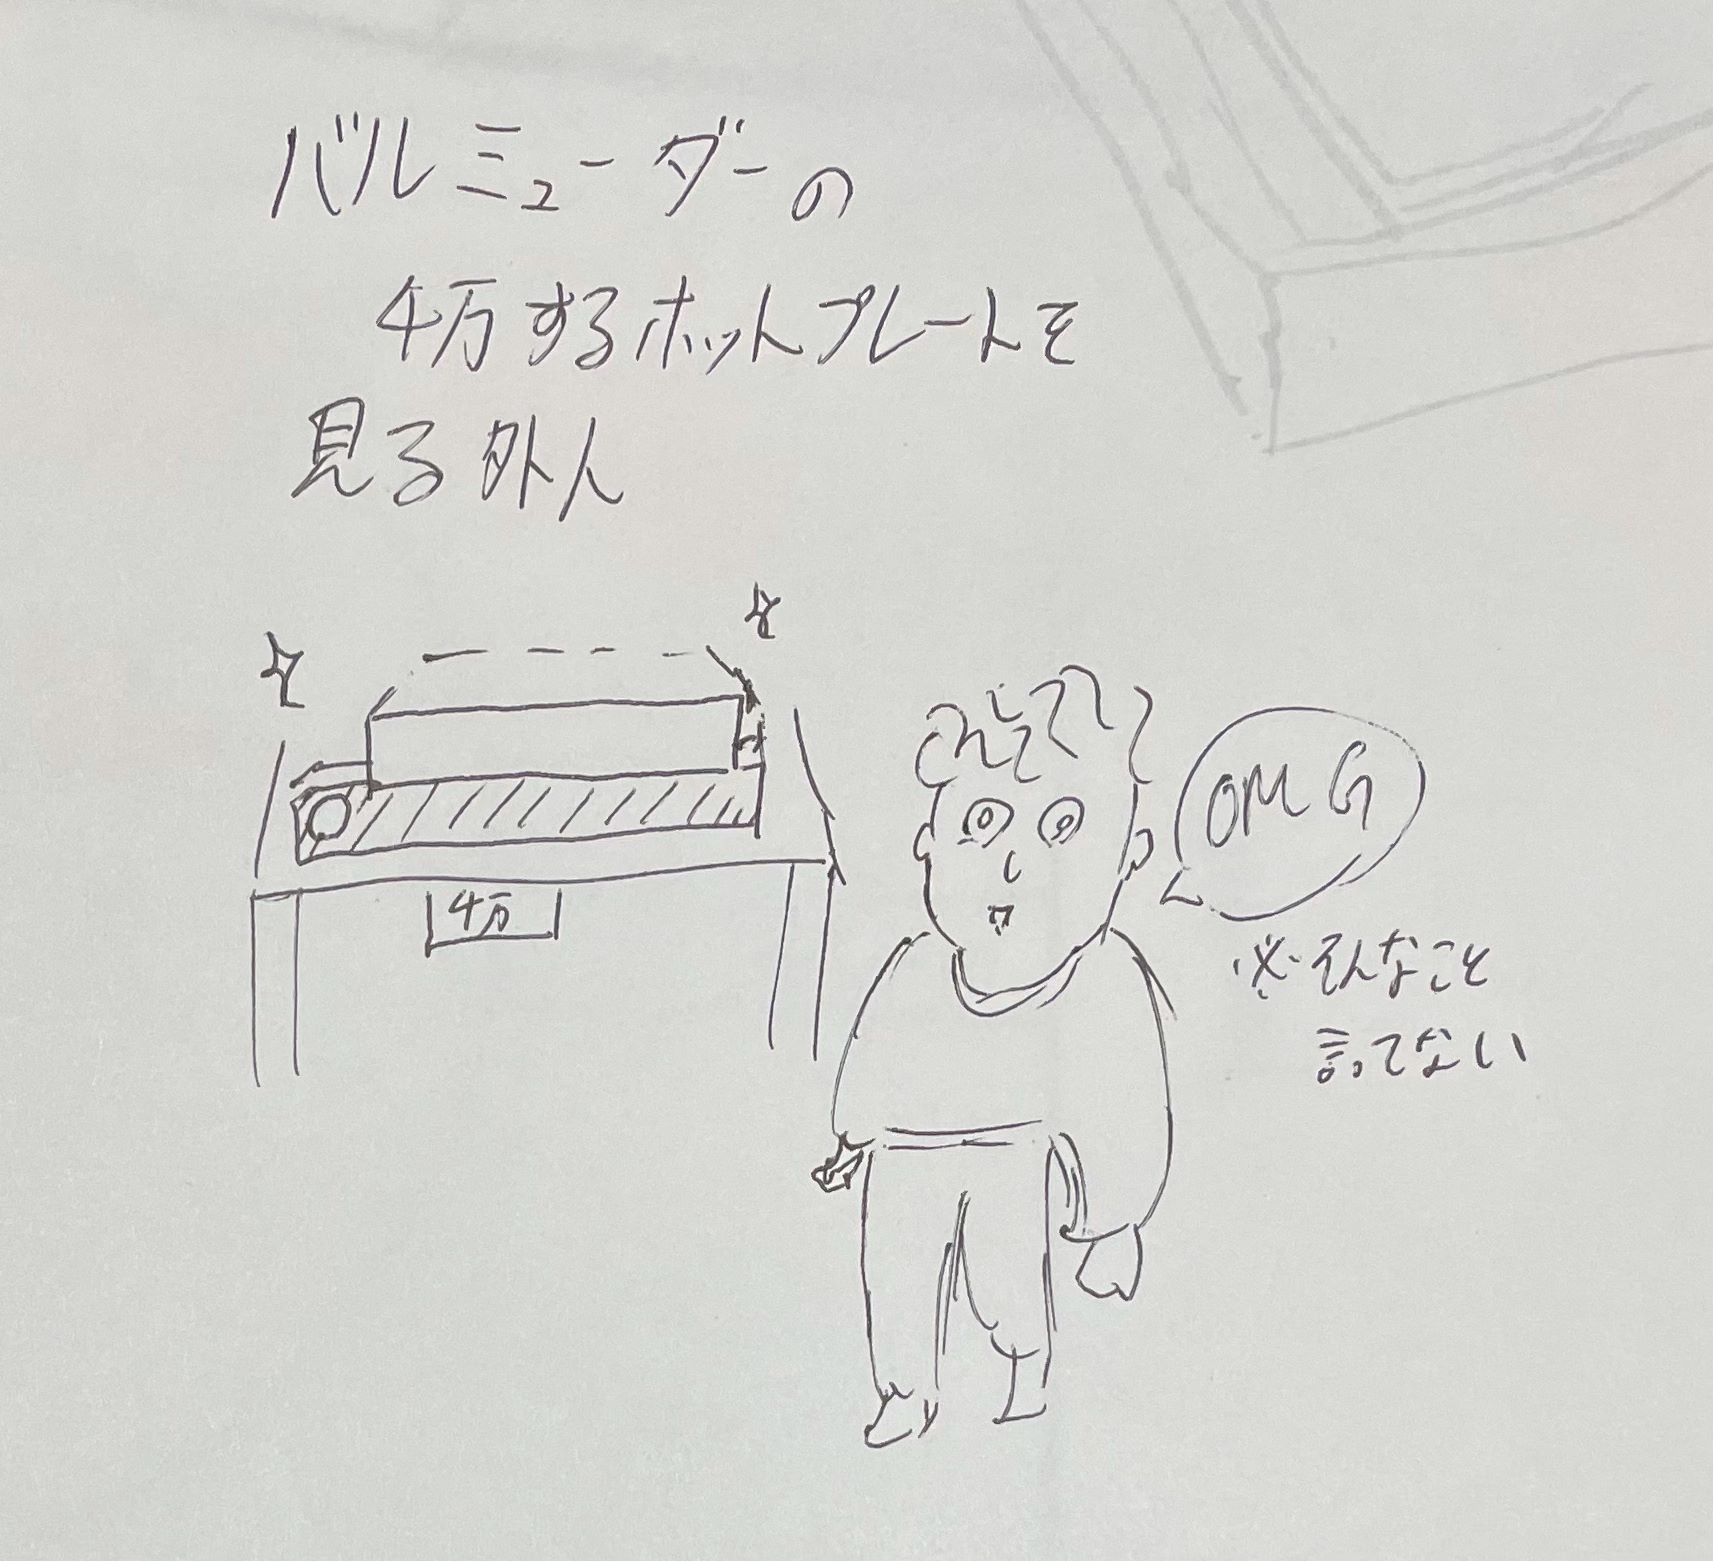 バルミューダーの
4万するホットプレートを
見る外人
4万
OMG
※そんなこと
言ってない